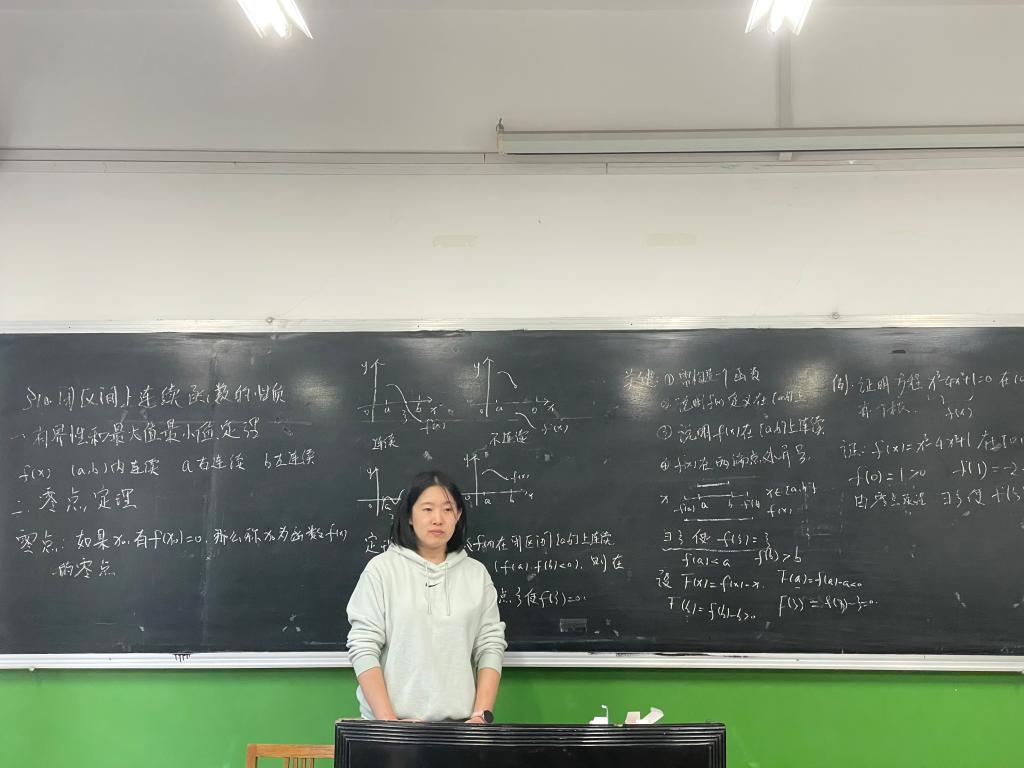 §10 闭区间上连续函数的性质
一 有界性和最大值最小值定理
f(x) (a,b)内连续 a右连续 b左连续
二 零点定理
零点: 如果x₀有f(x₀)=0,那么称x₀为函数f(x)
的零点
y
a
b
x
f(x)
连续
y
a
b
x
f(x)
不连续
y
a
y
f(x)
a
b
x
f(x)在闭区间[a,b]上连续
(f(a)·f(b)<0), 则在
点ξ使f(ξ)=0.
① 需构造一个函数
② 说明f(x)定义在[a,b]上
③ 说明f(x)在[a,b]上连续
④ f(x)在两端点处异号
x x∈[a,b]
f(a) a b f(b) f(x)
∃ξ使 f(ξ)=ξ
f(a)<a f(b)>b
设 F(x)=f(x)-x. F(a)=f(a)-a<0
F(b)=f(b)-b>0 F(ξ)=f(ξ)-ξ=0.
例: 证明方程x³-4x²+1=0在(0
有一个根. f(x)
证: f(x)=x³-4x²+1 在[0
f(0)=1>0 f(1)=-2
由零点定理 ∃ξ使f(ξ)